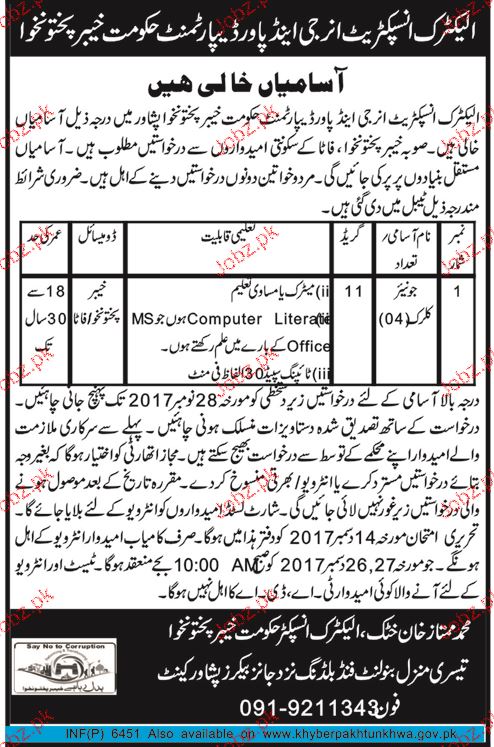 الیکٹرک انسپکٹریٹ انرجی اینڈ پاور ڈیپارٹمنٹ حکومت خیبر پختونخوا
آسامیاں خالی ھیں
الیکٹرک انسپکٹریٹ انرجی اینڈ پاور ڈیپارٹمنٹ حکومت خیبر پختونخوا پشاور میں درجہ ذیل آسامیاں
خالی ہیں۔ صوبہ خیبر پختونخوا، فاٹا کے سکونتی امیدواروں سے درخواستیں مطلوب ہیں۔ آسامیاں
مستقل بنیادوں پر پر کی جائیں گی۔ مرد و خواتین دونوں درخواستیں دینے کے اہل ہیں۔ ضروری شرائط
مندرجہ ذیل ٹیبل میں دی گئی ہیں۔
نمبر شمار
نام آسامی / تعداد
گریڈ
تعلیمی قابلیت
ڈومیسائل
عمر کی حد
1
جونیئر کلرک (04)
11
ii) میٹرک یا مساوی تعلیم
ii) Computer Literate ہوں جو MS
Office کے بارے میں علم رکھتے ہوں۔
iii) ٹائپنگ سپیڈ 30 الفاظ فی منٹ
خیبر پختونخوا / فاٹا
18 سے 30 سال تک
درجہ بالا آسامی کے لئے درخواستیں زیر دستخطی کو مورخہ 28 نومبر 2017 تک پہنچ جانی چاہئیں۔
درخواست کے ساتھ تصدیق شدہ دستاویزات منسلک ہونی چاہئیں۔ پہلے سے سرکاری ملازمت
والے امیدوار اپنے محکمے کے توسط سے درخواست بھیج سکتے ہیں۔ مجاز اتھارٹی کو اختیار ہوگا کہ بغیر وجہ
بتائے درخواستیں مسترد کرے یا انٹرویو / بھرتی منسوخ کر دے۔ مقررہ تاریخ کے بعد موصول ہونے
والی درخواستیں زیر غور نہیں لائی جائیں گی۔ شارٹ لسٹڈ امیدواروں کو انٹرویو کے لئے بلایا جائے گا۔
تحریری امتحان مورخہ 14 دسمبر 2017 کو دفتر ہذا میں ہوگا۔ صرف کامیاب امیدوار انٹرویو کے اہل
ہونگے۔ جو مورخہ 26,27 دسمبر 2017 کو صبح 10:00 AM بجے منعقد ہوگا۔ ٹیسٹ اور انٹرویو
کے لئے آنے والا کوئی امیدوار ٹی۔ اے، ڈی۔ اے کا اہل نہیں ہوگا۔
محمد ممتاز خان خٹک، الیکٹرک انسپکٹر حکومت خیبر پختونخوا
تیسری منزل بنولنٹ فنڈ بلڈنگ نزد جانز بیکرز پشاور کینٹ
فون 091-9211343
Say No to Corruption
INF(P) 6451 Also available on www.khyberpakhtunkhwa.gov.pk
Jobz.pk